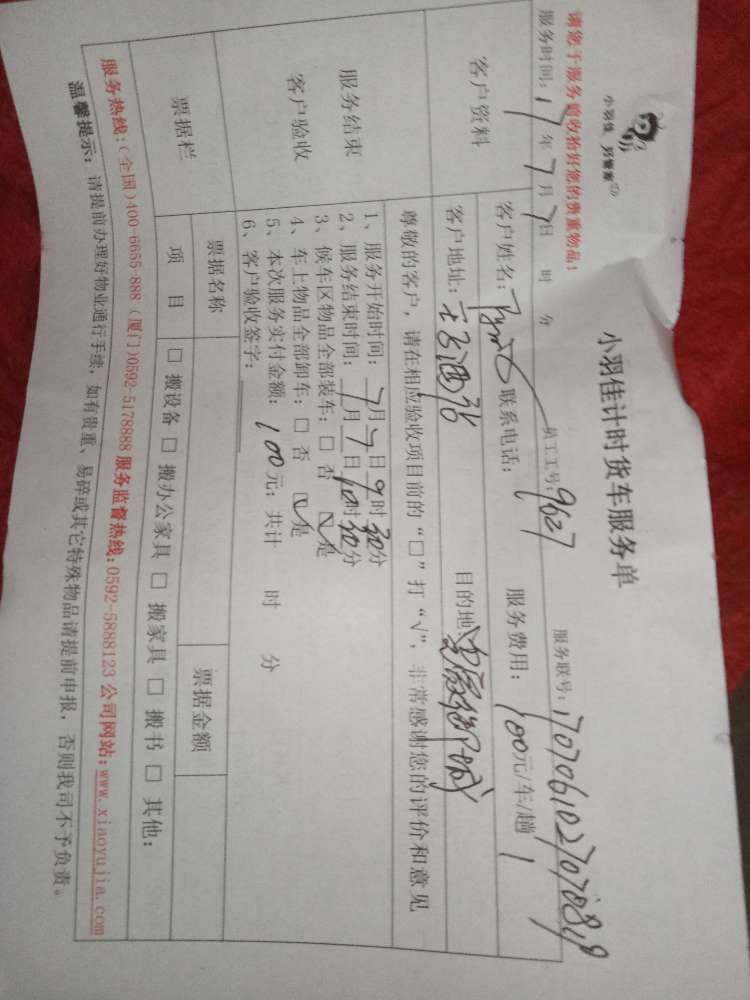 请您于服务前收拾好您的贵重物品!
小羽佳计时货车服务单
服务时间: 17年 7月 7日 时 分 员工工号: 9627 服务联号:
客户资料
客户姓名: 联系电话: 服务费用: 100元/车/趟 1
客户地址: 目的地
尊敬的客户,请在相应验收项目前的“□”打“√”,非常感谢您的评价和意见
服务结束
客户验收
1、服务开始时间: 7月7日9时30分
2、服务结束时间: 7月7日10时30分
3、候车区物品全部装车: □ 否 ☑ 是
4、车上物品全部卸车: □ 否 ☑ 是
5、本次服务实付金额: 100元; 共计 时 分
6、客户验收签字:
票据栏
票据名称 票据金额
项 目 □ 搬设备 □ 搬办公家具 □ 搬家具 □ 搬书 □ 其他:
服务热线:(全国)400-6655-888 (厦门)0592-5178888 服务监督热线:0592-5888123 公司网站:www.xiaoyujia.com
温馨提示: 请提前办理好物业通行手续,如有贵重、易碎或其它特殊物品请提前申报,否则我司不予负责。